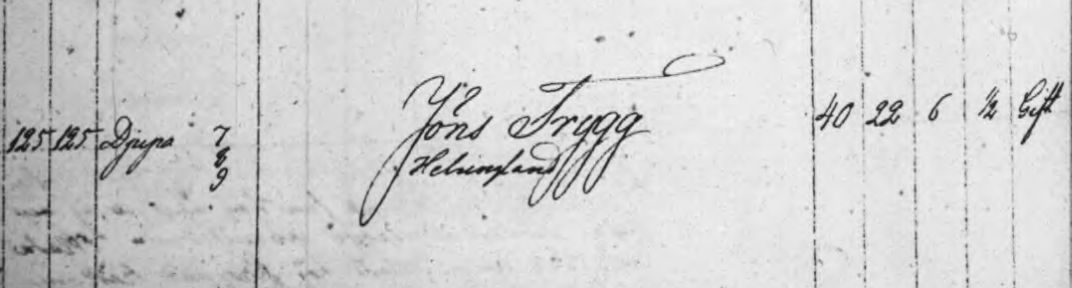 125 125 Djupa 7 Jöns Trygg 40 22 6 1/2 Gift
8 Helsingland
9